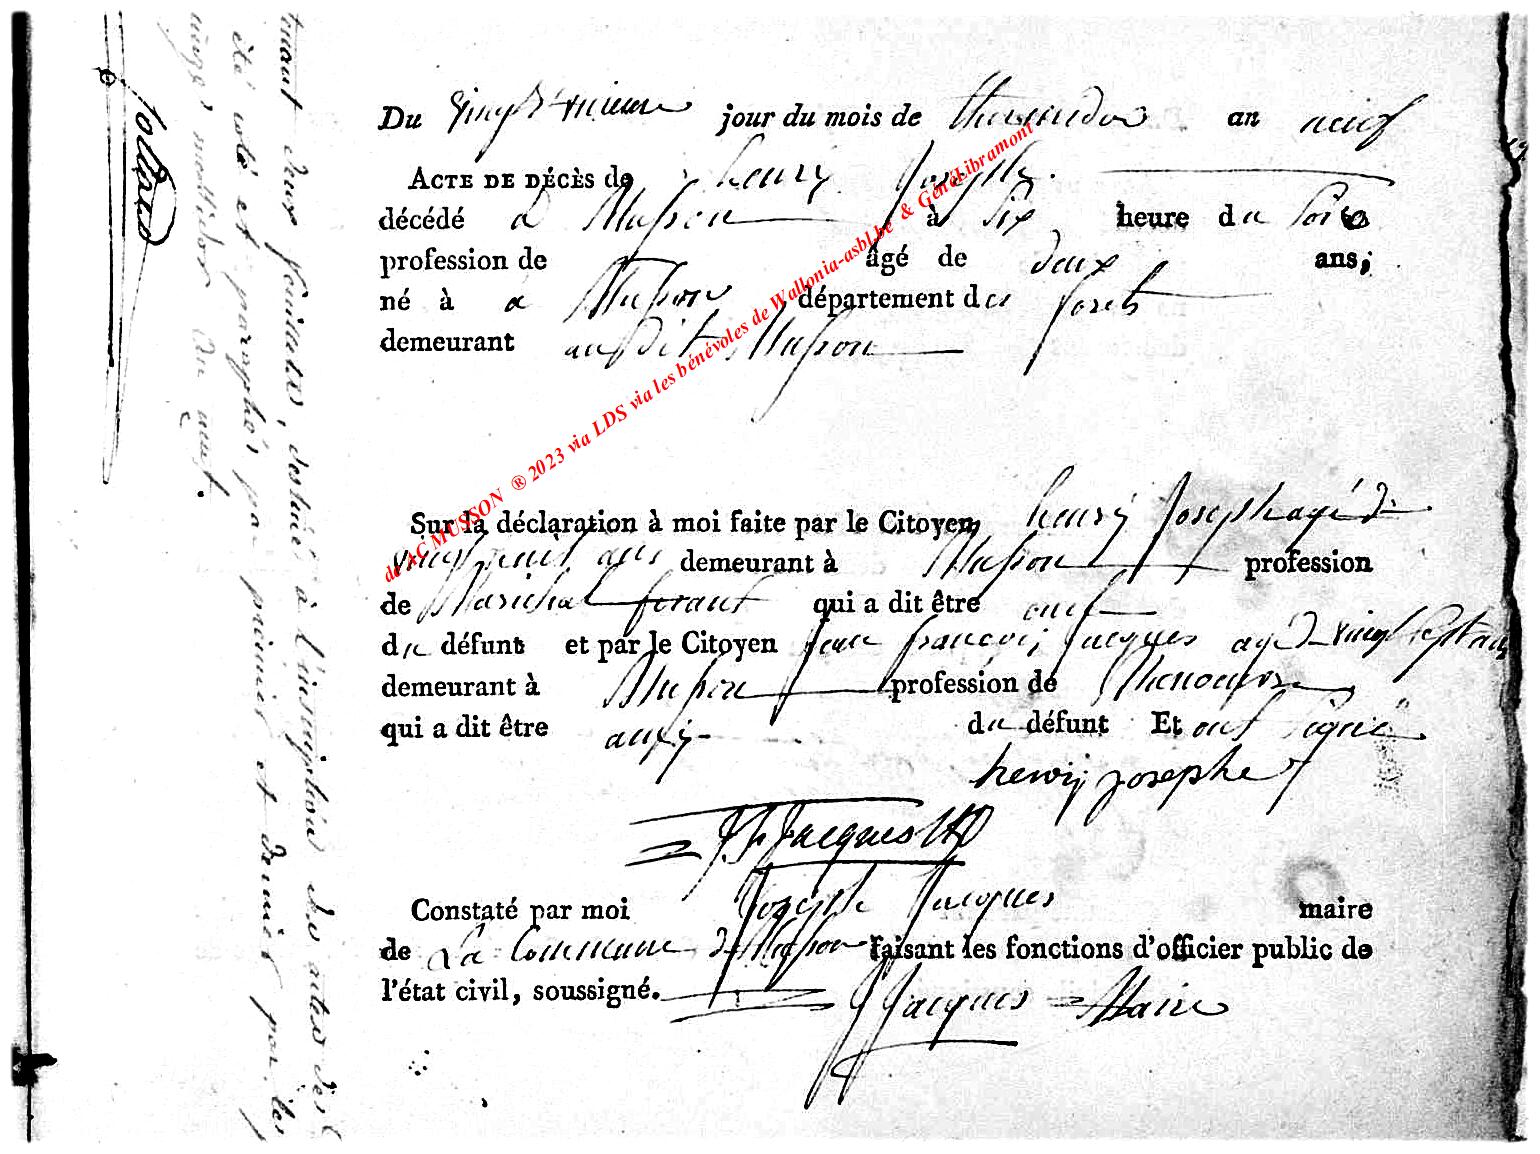 Du vingt unieme jour du mois de thermidor an neuf
ACTE DE DÉCÈS de henry Joseph
décédé a Musson à Six heure du Soir
profession de âgé de deux ans;
né à a Musson département des forets
demeurant audit Musson
Sur la déclaration à moi faite par le Citoyen henry Joseph agé de
vingt neuf ans demeurant à Musson profession
de Marichal ferant qui a dit être
du défunt et par le Citoyen Jean françois Jacques agé de vingt sept ans
demeurant à Musson profession de Manouvre
qui a dit être du défunt Et ont signé
henrij josephe
JF Jacques
Constaté par moi Joseph Jacques maire
de La Commune de Musson faisant les fonctions d'officier public de
l'état civil, soussigné.
J Jacques Maire
de AC MUSSON ® 2023 via LDS via les bénévoles de Wallonia-asbl.be & GénéLibramont
deux feuilles, destiné à l'inscription des actes de
été coté et paraphé par premier et dernier par les
messidor an neuf.